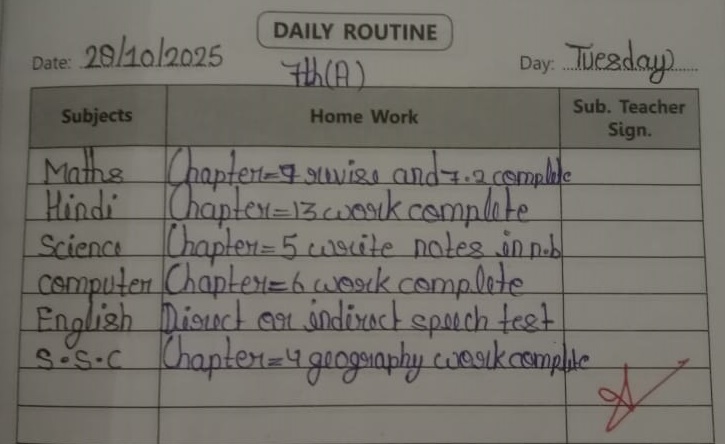 DAILY ROUTINE
Date: 28/10/2025
7th(A)
Day: Tuesday
Subjects Home Work Sub. Teacher Sign.
Maths Chapter=7 revise and 7.2 complete
Hindi Chapter=13 work complete
Science Chapter=5 write notes in n.b
computer Chapter=6 work complete
English Direct or indirect speech test
S.S.C Chapter=4 geography work complete